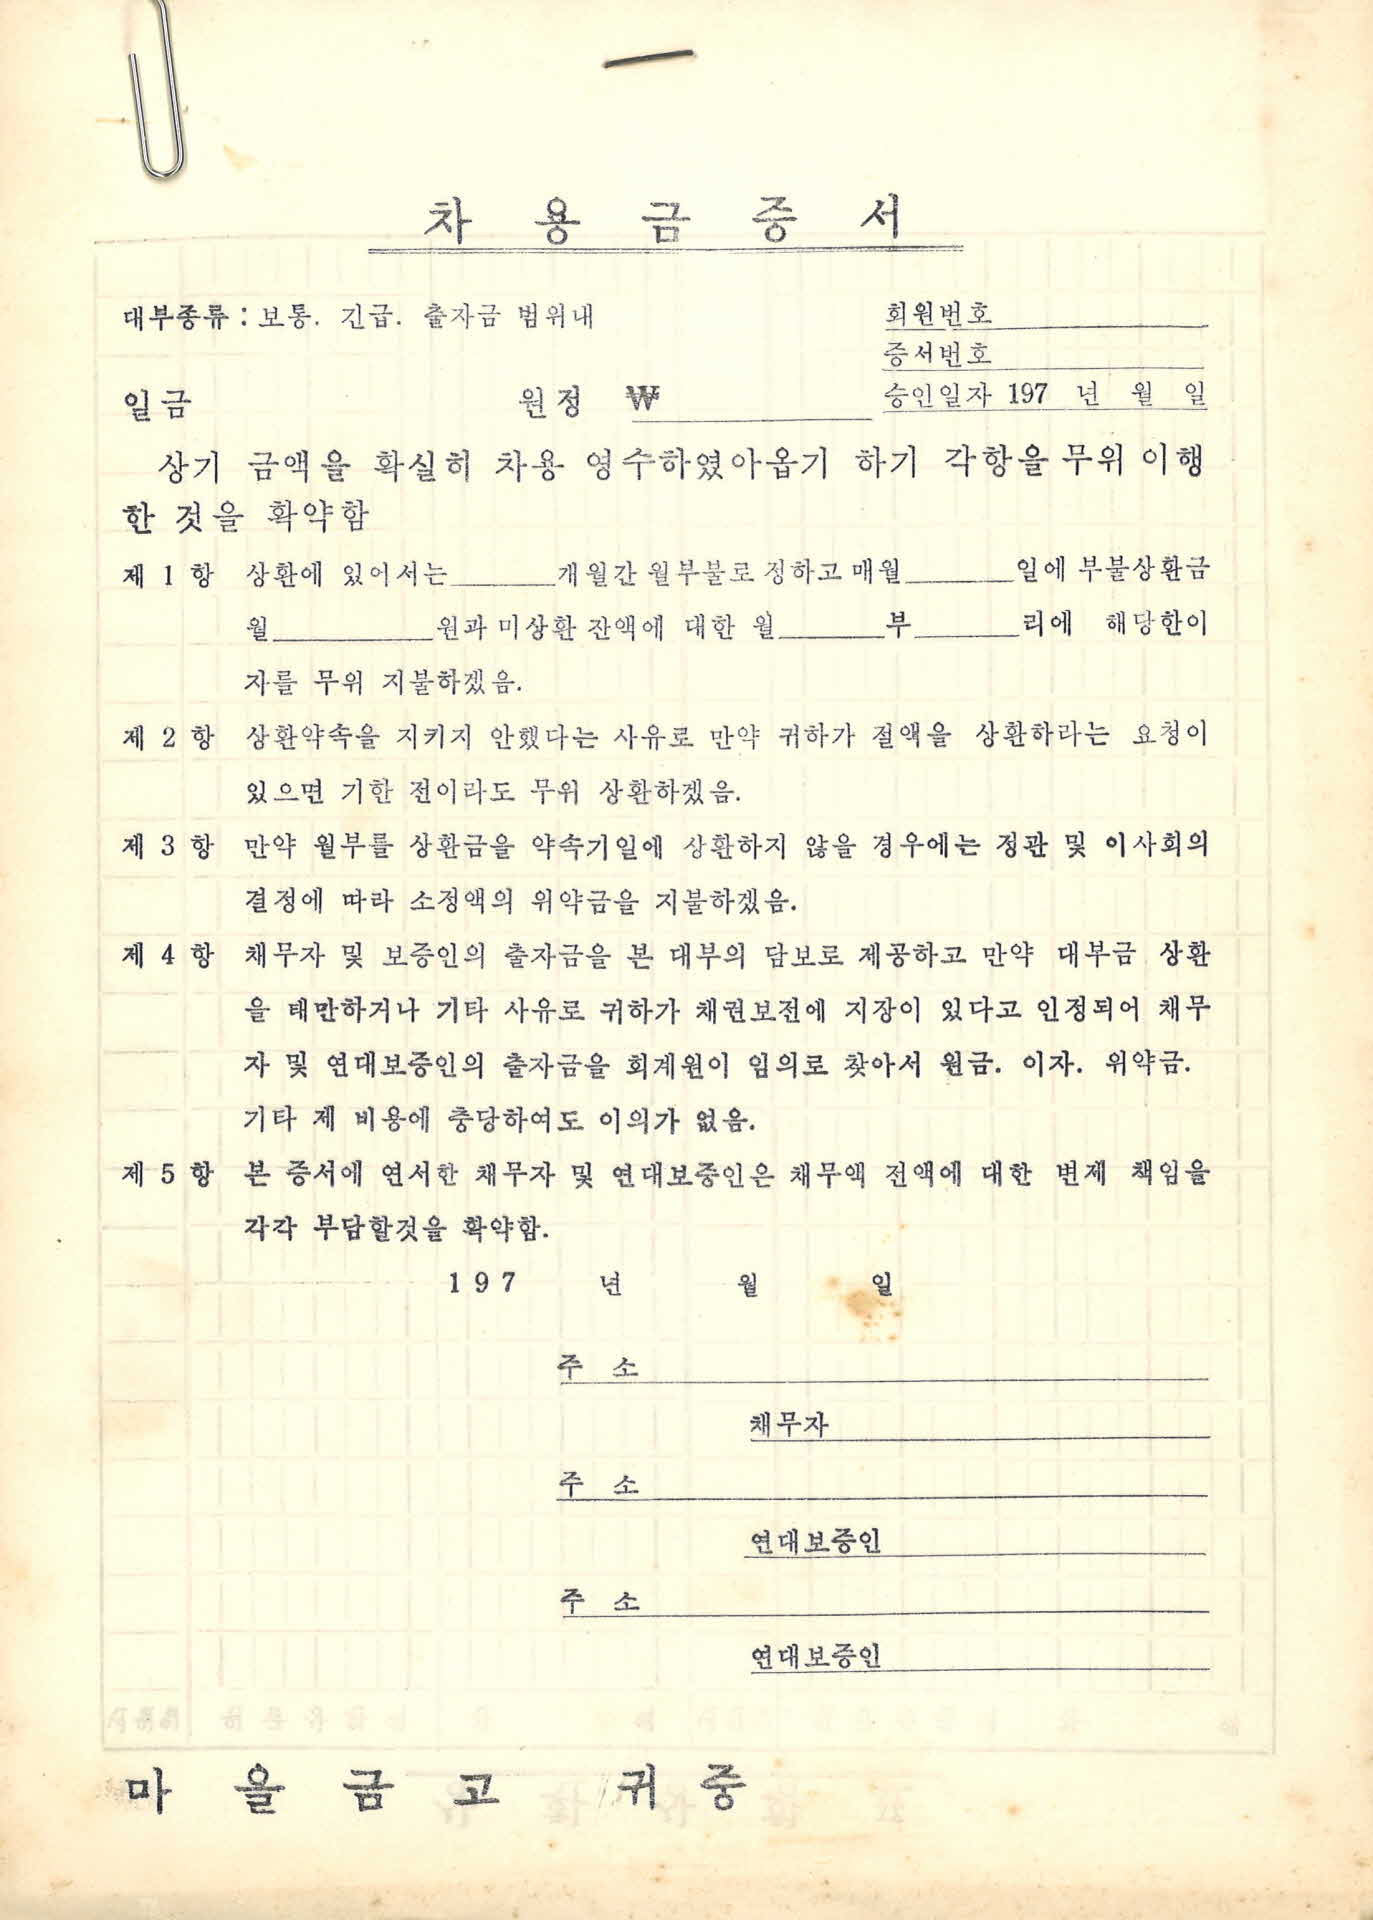 차 용 금 증 서
대부종류 : 보통. 긴급. 출자금 범위내
회원번호
증서번호
일금 원정 ₩
승인일자 197 년 월 일
상기 금액을 확실히 차용 영수하였아옵기 하기 각항을 무위 이행
한 것을 확약함
제 1 항 상환에 있어서는______개월간 월부불로 정하고 매월______일에 부불상환금
월______원과 미상환 잔액에 대한 월______부______리에 해당한이
자를 무위 지불하겠음.
제 2 항 상환약속을 지키지 안했다는 사유로 만약 귀하가 절액을 상환하라는 요청이
있으면 기한 전이라도 무위 상환하겠음.
제 3 항 만약 월부를 상환금을 약속기일에 상환하지 않을 경우에는 정관 및 이사회의
결정에 따라 소정액의 위약금을 지불하겠음.
제 4 항 채무자 및 보증인의 출자금을 본 대부의 담보로 제공하고 만약 대부금 상환
을 태만하거나 기타 사유로 귀하가 채권보전에 지장이 있다고 인정되어 채무
자 및 연대보증인의 출자금을 회계원이 임의로 찾아서 원금. 이자. 위약금.
기타 제 비용에 충당하여도 이의가 없음.
제 5 항 본 증서에 연서한 채무자 및 연대보증인은 채무액 전액에 대한 변제 책임을
각각 부담할것을 확약함.
197 년 월 일
주 소
채무자
주 소
연대보증인
주 소
연대보증인
마 을 금 고 귀 중